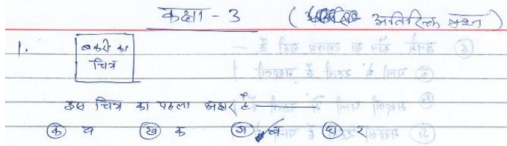 कक्षा - 3 ( अतिरिक्त प्रश्न )
1. बकरी का
चित्र
इस चित्र का पहला अक्षर है
(क) य (ख) क (ग) ब (घ) र